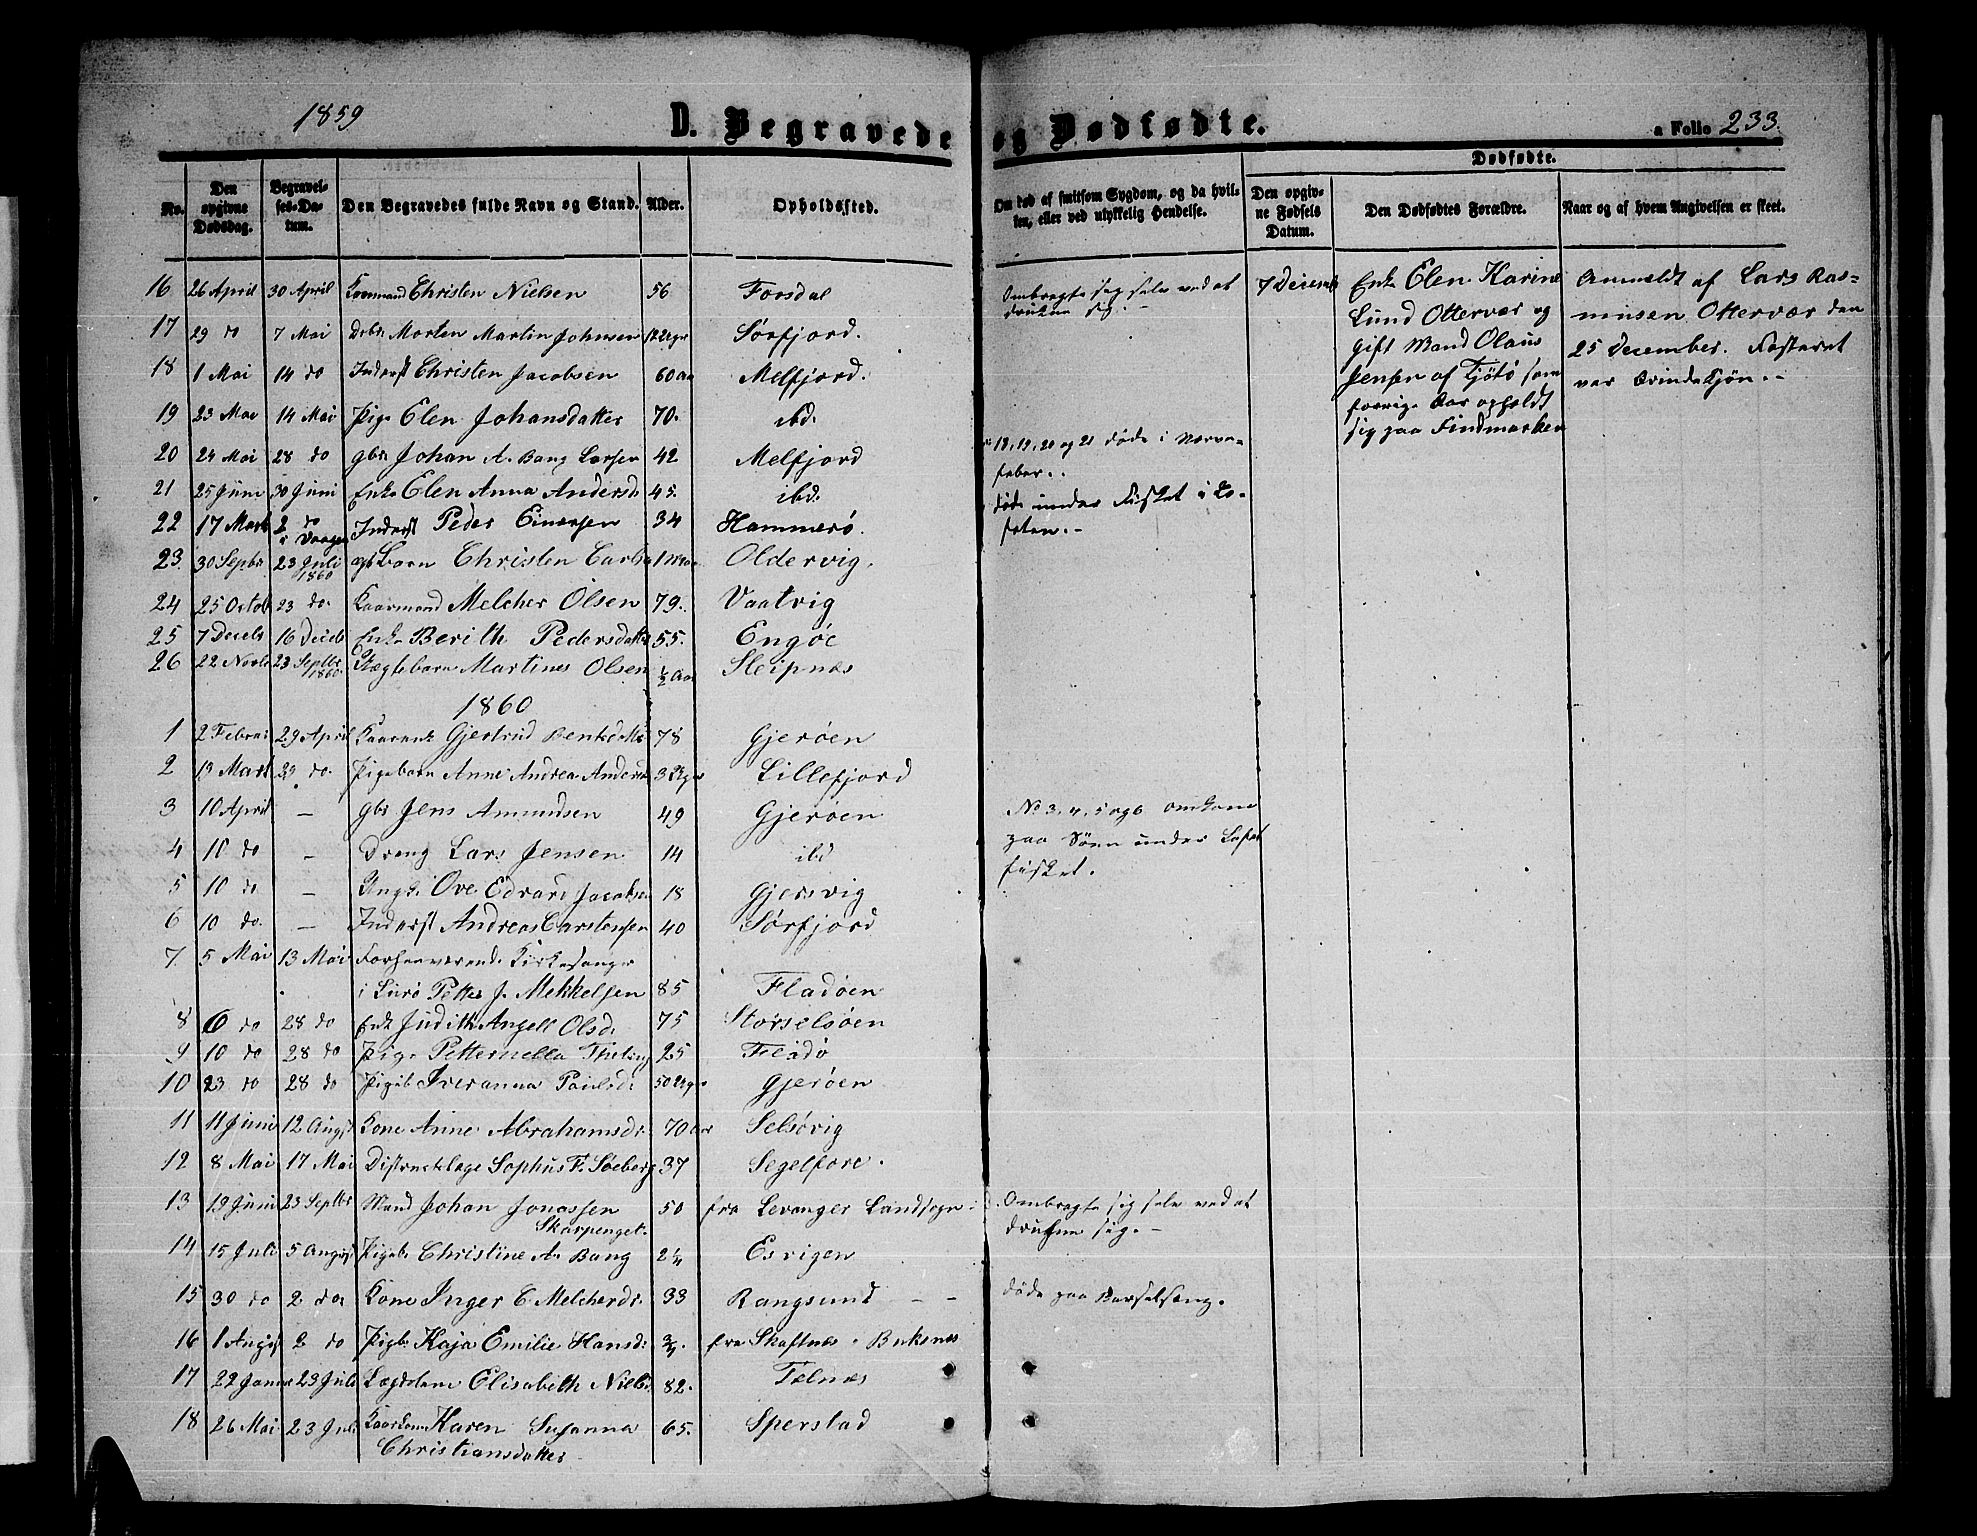 1859
D. Begravede og Dødfødte.
a Folio 233.
No.
Den opgivne Dødsdag.
Begravelses-Datum.
Den Begravedes fulde Navn og Stand.
Alder.
Opholdssted.
Om død af smitsom Sygdom, og da hvilken, eller ved ulykkelig Hendelse.
Dødfødte.
Den opgivne Fødsels Datum.
Den Dødfødtes Forældre.
Naar og af hvem Angivelsen er skeet.
16 26 April 30 April Kaarmand Christen Nielsen 56 Forsdal
Ombragte sig selv ved at
drukne sig. -
17 29 do 7 Mai Morten Martin Johnsen Sörfjord.
18 1 Mai 14 do Inderst Christen Jacobsen 60 Aar Melfjord.
19 23 Mai 14 Mai Pige Elen Johansdatter 70. ibd.
20 24 Mai 28 do gbr Johan A. Bang Larsen 42 Melfjord
21 25 Juni 30 Juni Enke Elen Anna Andersd. 45. ibd.
18, 19, 20 og 21 døde i Nerve-
feber..
22 17 Mart 2 do i Vaagen Inderst Peder Einersen 34 Hammerö
døde under Fisket i Lo-
foten. -
23. 30 Septbr 23 Juli 1860 gbBarn Christen Carls Oldervig.
24 25 Octob 23 do. Kaarmand Melcher Olsen 79. Vaatvig
25 7 Deceb 16 Deceb Enke Berith Pedersdatter 55. Engöe
26 22 Novb 23 Septbr 1860 Lægtebarn Martines Olsen ½ Aar Sleipnæs
7 Decemb
Enke Elen Karine
Lund Ottervær og
gift Mand Olaus
Jensen af Tjötö som
forrige Aar opholdt
sig paa Findmarken
Anmeldt af Lars Ras-
musen Ottervær den
25 December. Fosteret
var Qvindekjön. -
1860
1 2 Februar 29 April Gjertrud Bentsdatter 78 Gjeröen
2 13 Mart 29 do. Pigebarn Anne Andrea Anders 3 Uger Lillefjord
3 10 April - gbr Jens Amundsen 49 Gjeröen
4 10 do - Dreng Lars Jensen 14 ibd
5 10 do - Ungk. Ove Edvard Jacobsen 18 Gjersvig
6 10 do. - Inderst Andreas Carstensen 40 Sörfjord
No 3, 4, 5 og 6 omkom
paa Söen under Lofot
fisket.
7. 5 Mai 13 Mai Forhenværende Kirkesanger
i Lurö Petter J. Mekkelsen 85 Fladöen
8 6 do 28 do Enk Judith Angell Olsd. 75 Storselsöen
9 10 do 28 do Pige Petternella 25 Fladö
10 23 do 28 do Pigeb Iveranna Paulsd. 50 Uger Gjeröen
11 11 Juni 12 Augst Kone Anne Abrahamsdr. 70 Aar Selsövig
12 8 Mai 17 Mai Districtslæge Sophus F. Soeberg 37 Segelfore.
13 19 Juni 23 Septbr Mand Johan Jonassen 50 fra Levanger Landsogn
Skarpenget.
Ombragte sig selv ved at
drukne sig. -
14 15 Juli 5 Augst Pigeb. Christine A. Bang 2¼ Esvigen
15 30 do 2 do. Kone Inger E. Melcherdr. 33 Rangsund - -
døde paa Barselseng.
16 1 Augst 2 do Pigb. Kaja Emilie Hansd. ¾. fra Skaftnæs i Buksnæs
17 22 Januar 23 Juli Lægdslem Elisabeth Niels 82. Telnæs
18 26 Mai 23 Juli Kaarkone Karen Susanna 65. Sperstad
Christiansdatter